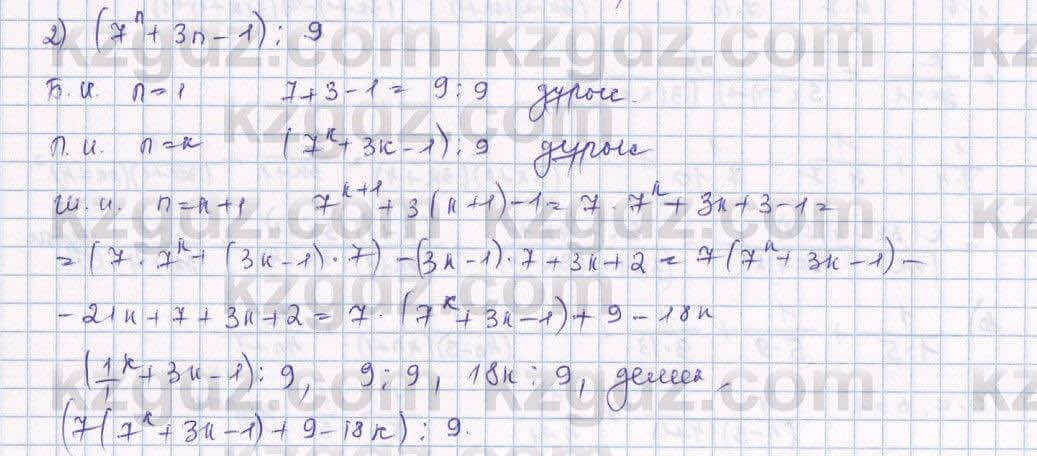 2) (7ⁿ + 3n - 1) ⋮ 9
Б.и. n=1 7+3-1 = 9 ⋮ 9 дұрыс.
П.и. n=k (7ᵏ + 3k - 1) ⋮ 9 дұрыс
Ш.и. n=k+1 7ᵏ⁺¹ + 3(k+1) - 1 = 7·7ᵏ + 3k + 3 - 1 =
= (7·7ᵏ + (3k-1)·7) - (3k-1)·7 + 3k + 2 = 7(7ᵏ + 3k - 1) -
- 21k + 7 + 3k + 2 = 7·(7ᵏ + 3k - 1) + 9 - 18k
(7ᵏ + 3k - 1) ⋮ 9, 9 ⋮ 9, 18k ⋮ 9, демек,
(7(7ᵏ + 3k - 1) + 9 - 18k) ⋮ 9.
kzgdz.com